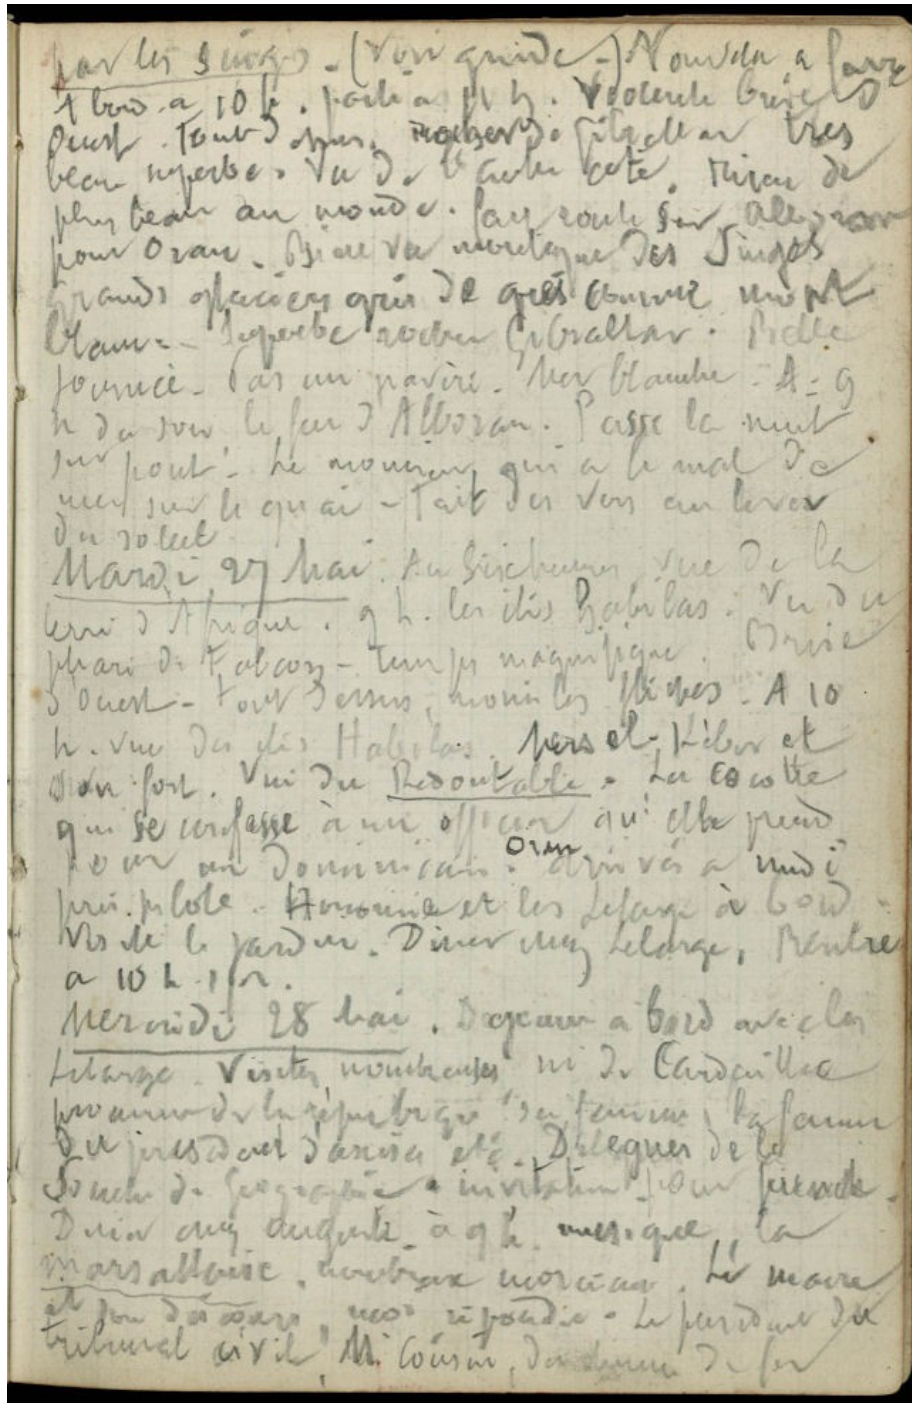 par les singes - (Voir guide -) Nourdu a
A bord a 10 h. parti a 11 h. Violente brise d'
Ouest. Tout dessus. rocher de Gibraltar très
beau superbe. Vu de l'autre coté. Rien de
plus beau au monde. fait route sur Alboran
pour Oran. Bien vu montagne des Singes
Grands glaciers gris de comme mont
blanc - Superbe rocher Gibraltar. Belle
journée. Pas un navire. Mer blanche. A 9
h du soir le feu d'Alboran. Passe la nuit
sur pont. Le monsieur qui a le mal de
mer sur le quai - Fait des vers au lever
du soleil
Mardi 27 Mai. vue de la
terre d'Afrique. 9 h. les iles Habibas. Vu du
phare de Falcon - temps magnifique. Brise
d'Ouest - tout dessus, moins les fleches. A 10
h. vue des iles Habibas. Mers el Kebir et
son fort. Vu du Redoutable. La cocotte
qui se confesse à un officier qu'elle prend
pour un dominicain. Oran arrivés a midi
pris pilote. et les Lelarge à bord.
Visite le jardin. Diner chez Lelarge, Rentre
a 10 h. 1/2.
Mercredi 28 Mai. Dejeuner a bord avec les
Lelarge. Visites nombreuses de Cardaillac
de la république sa femme, la femme
du president d'assises etc. Délegués de la
Société de Géographie invitation pour
Diner chez Auguste à 9 h. musique, la
marsallaise, nombreux morceaux. Le maire
et son discours, repondu. Le president du
tribunal civil M. Cousin, de fer